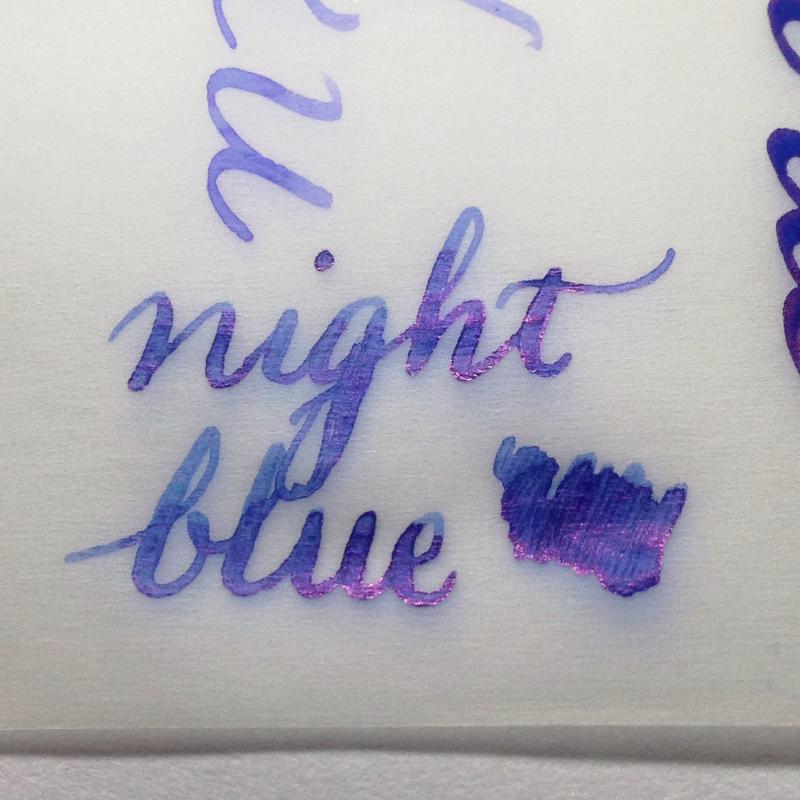 night
blue